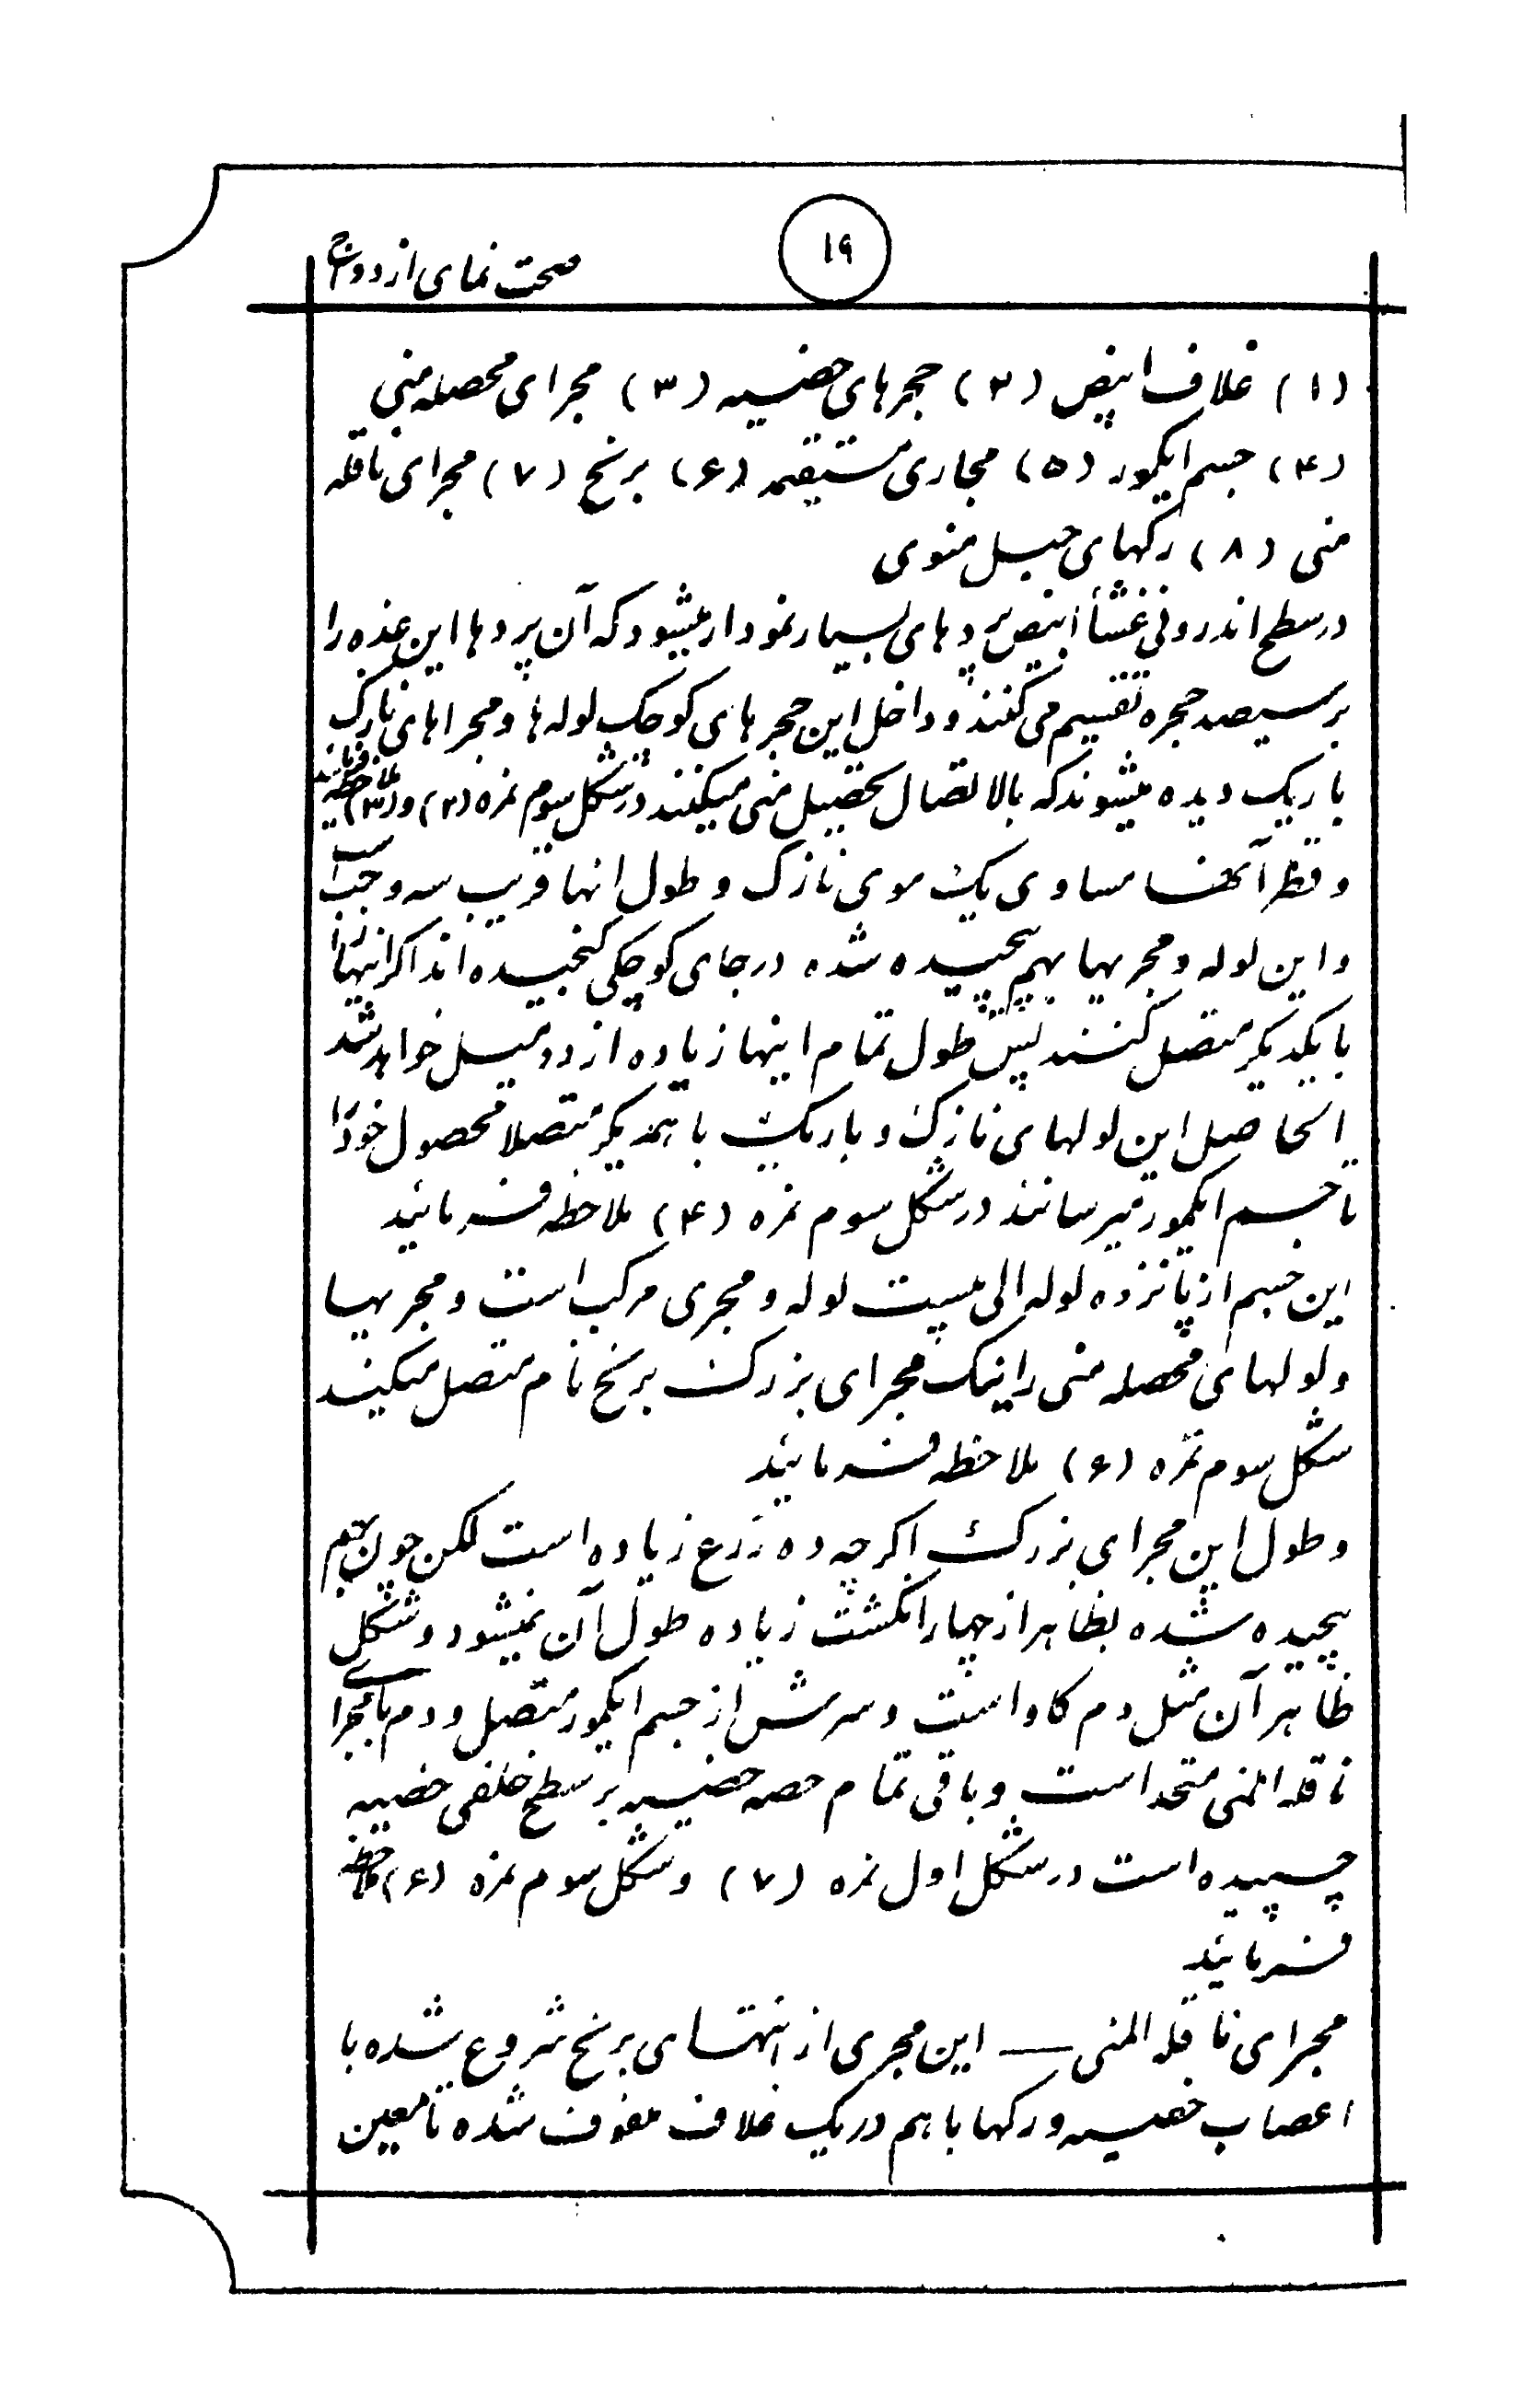 ۱۹
صحت نمای ازدواج
(۱) غلاف ابیض (۲) حجرهای خصیه (۳) مجرای محصله منی
(۴) جسم ایکمور (۵) مجاری مستقیمه (۶) برنخ (۷) مجرای ناقله
منی (۸) رکهای حبل منوی
در سطح اندرونی غشأ ابیض پردهای بسیار نمودار میشود که آن پردها این غده را
بر سیصد حجره تقسیم می کنند و داخل این حجرهای کوچک لوله ها و مجراهای نازک
باریک دیده میشوند که بالاتصال تحصیل منی میکنند در شکل سوم نمره (۲) و (۳) ملاحظه فرمائید
و قطر آنها مساوی یک موی نازک و طول انها قریب سه وجب است
و این لوله و مجریها بهم پیچیده شده در جای کوچکی کنجیده اند اکر اینها را
با یکدیکر متصل کنند پس طول تمام اینها زیاده از دو میل خواهد شد
الحاصل این لولهای نازک و باریک با همدیکر متصلا محصول خود را
تا جسم ایکمور میرسانند در شکل سوم نمره (۴) ملاحظه فرمائید
این جسم از پانزده لوله الی بیست لوله و مجری مرکب است و مجریها
و لولهای محصله منی را بیک مجرای بزرک برنخ نام متصل میکنند
شکل سوم نمره (۶) ملاحظه فرمائید
و طول این مجرای بزرک اکرچه ده زرع زیاده است لکن چون بهم
پیچیده شده بظاهر از چهار انکشت زیاده طول آن نمیشود و شکل
ظاهر آن مثل دم کاو است و سرش از جسم ایکمور متصل و دم با مجرای
ناقله المنی متحد است و باقی تمام حصه خصیه بر سطح خلفی خصیه
چسپیده است در شکل اول نمره (۷) و شکل سوم نمره (۶) ملاحظه
فرمائید
مجرای ناقله المنی — این مجری از انتهای برنخ شروع شده با
اعصاب خصیه و رکها با هم در یک غلاف ملفوف شده تا معین